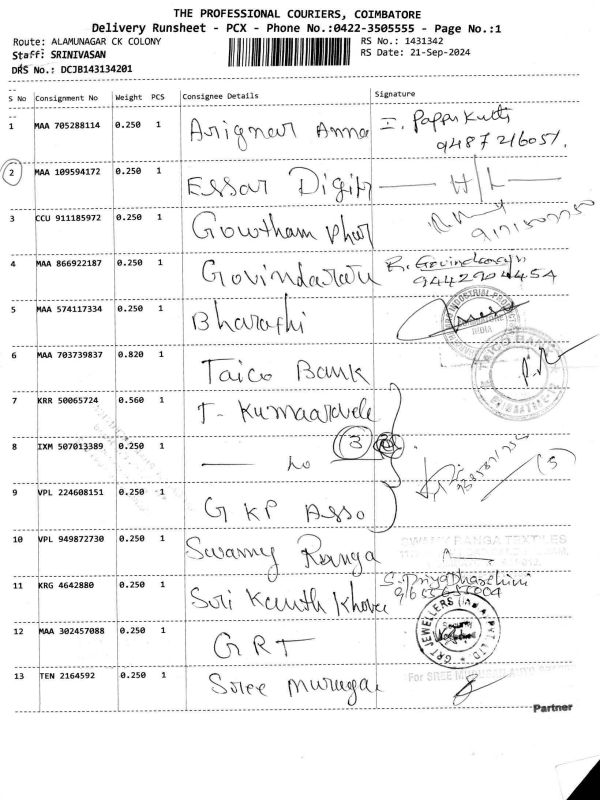 THE PROFESSIONAL COURIERS, COIMBATORE
Delivery Runsheet - PCX - Phone No.:0422-3505555 - Page No.:1
Route: ALAMUNAGAR CK COLONY RS No.: 1431342
Staff: SRINIVASAN RS Date: 21-Sep-2024
DRS No.: DCJB143134201
S No Consignment No Weight PCS Consignee Details Signature
1 MAA 705288114 0.250 1 Arignar Anna I. Pappukutti
9487216051.
2 MAA 109594172 0.250 1 Essar Digit H/L
3 CCU 911185972 0.250 1 Gowtham Phar
4 MAA 866922187 0.250 1 Govindaraj R. Govindaraju
9442904454
5 MAA 574117334 0.250 1 Bharathi
INDIA
6 MAA 703739837 0.820 1 Taico Bank TAICO BANK
7 KRR 50065724 0.560 1 T. Kumaaravele
8 IXM 507013389 0.250 1 3
(5)
9 VPL 224608151 0.250 1 GKP Asso
10 VPL 949872730 0.250 1 Swamy Ranga SWAMY RANGA TEXTILES
11 KRG 4642880 0.250 1 Suri Kanth Khova S. Priyadharshini
12 MAA 302457088 0.250 1 GRT GRT JEWELLERS (INDIA) PVT LTD
Security
13 TEN 2164592 0.250 1 Sree Murugan For SREE MURUGAN
Partner